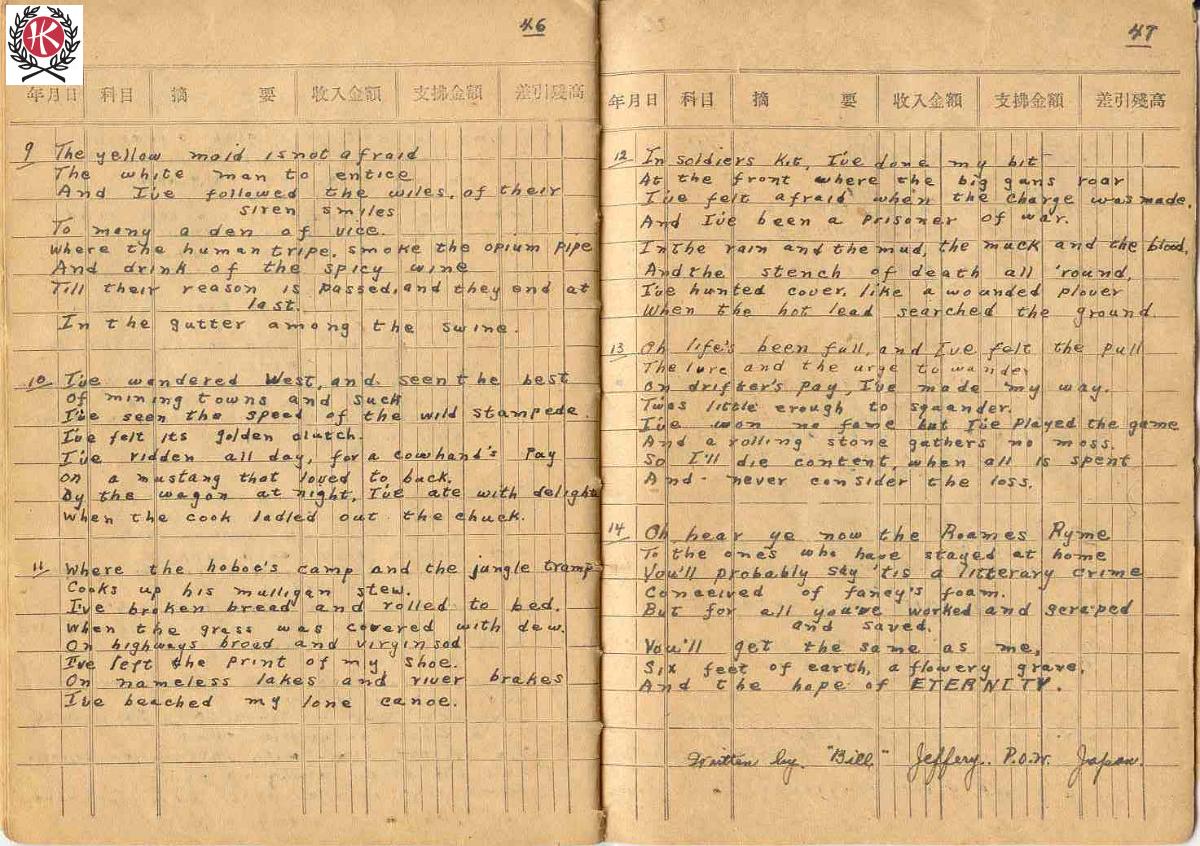 HK
46
年月日 科目 摘 要 收入金額 支拂金額 差引殘高
9 The yellow maid is not afraid
The white man to entice
And I've followed the wiles, of their
siren smiles
To many a den of vice.
Where the human tripe, smoke the opium pipe
And drink of the spicy wine
Till their reason is passed, and they end at
last.
In the gutter among the swine.
10 I've wandered West, and seen the best
Of mining towns and suck
I've seen the speed of the wild stampede.
I've felt its golden clutch.
I've ridden all day, for a cowhand's Pay
On a mustang that loved to buck.
By the wagon at night, I've ate with delight
When the cook ladled out the chuck.
11 Where the hoboe's camp and the jungle tramp
Cooks up his mulligan stew.
I've broken bread and rolled to bed.
When the grass was covered with dew.
On highways broad and virgin sod
I've left the print of my shoe.
On nameless lakes and river brakes
I've beached my lone canoe.
47
年月日 科目 摘 要 收入金額 支拂金額 差引殘高
12 In soldiers kit, I've done my bit
At the front where the big guns roar
I've felt afraid when the charge was made,
And I've been a prisoner of war.
In the rain and the mud, the muck and the blood,
And the stench of death all 'round,
I've hunted cover, like a wounded plover
When the hot lead searched the ground
13 Oh life's been full, and I've felt the pull
The lure and the urge to wander
On drifter's pay, I've made my way.
Twas little enough to squander.
I've won no fame but I've played the game
And a rolling stone gathers no moss.
So I'll die content, when all is spent
And never consider the loss.
14 Oh hear ye now the Roames Ryme
To the one's who have stayed at home
You'll probably say 'tis a litterary crime
Conceived of fancy's foam.
But for all you've worked and scraped
and saved.
You'll get the same as me,
Six feet of earth, a flowery grave,
And the hope of ETERNITY.
Written by "Bill" Jeffery. P.O.W. Japan.